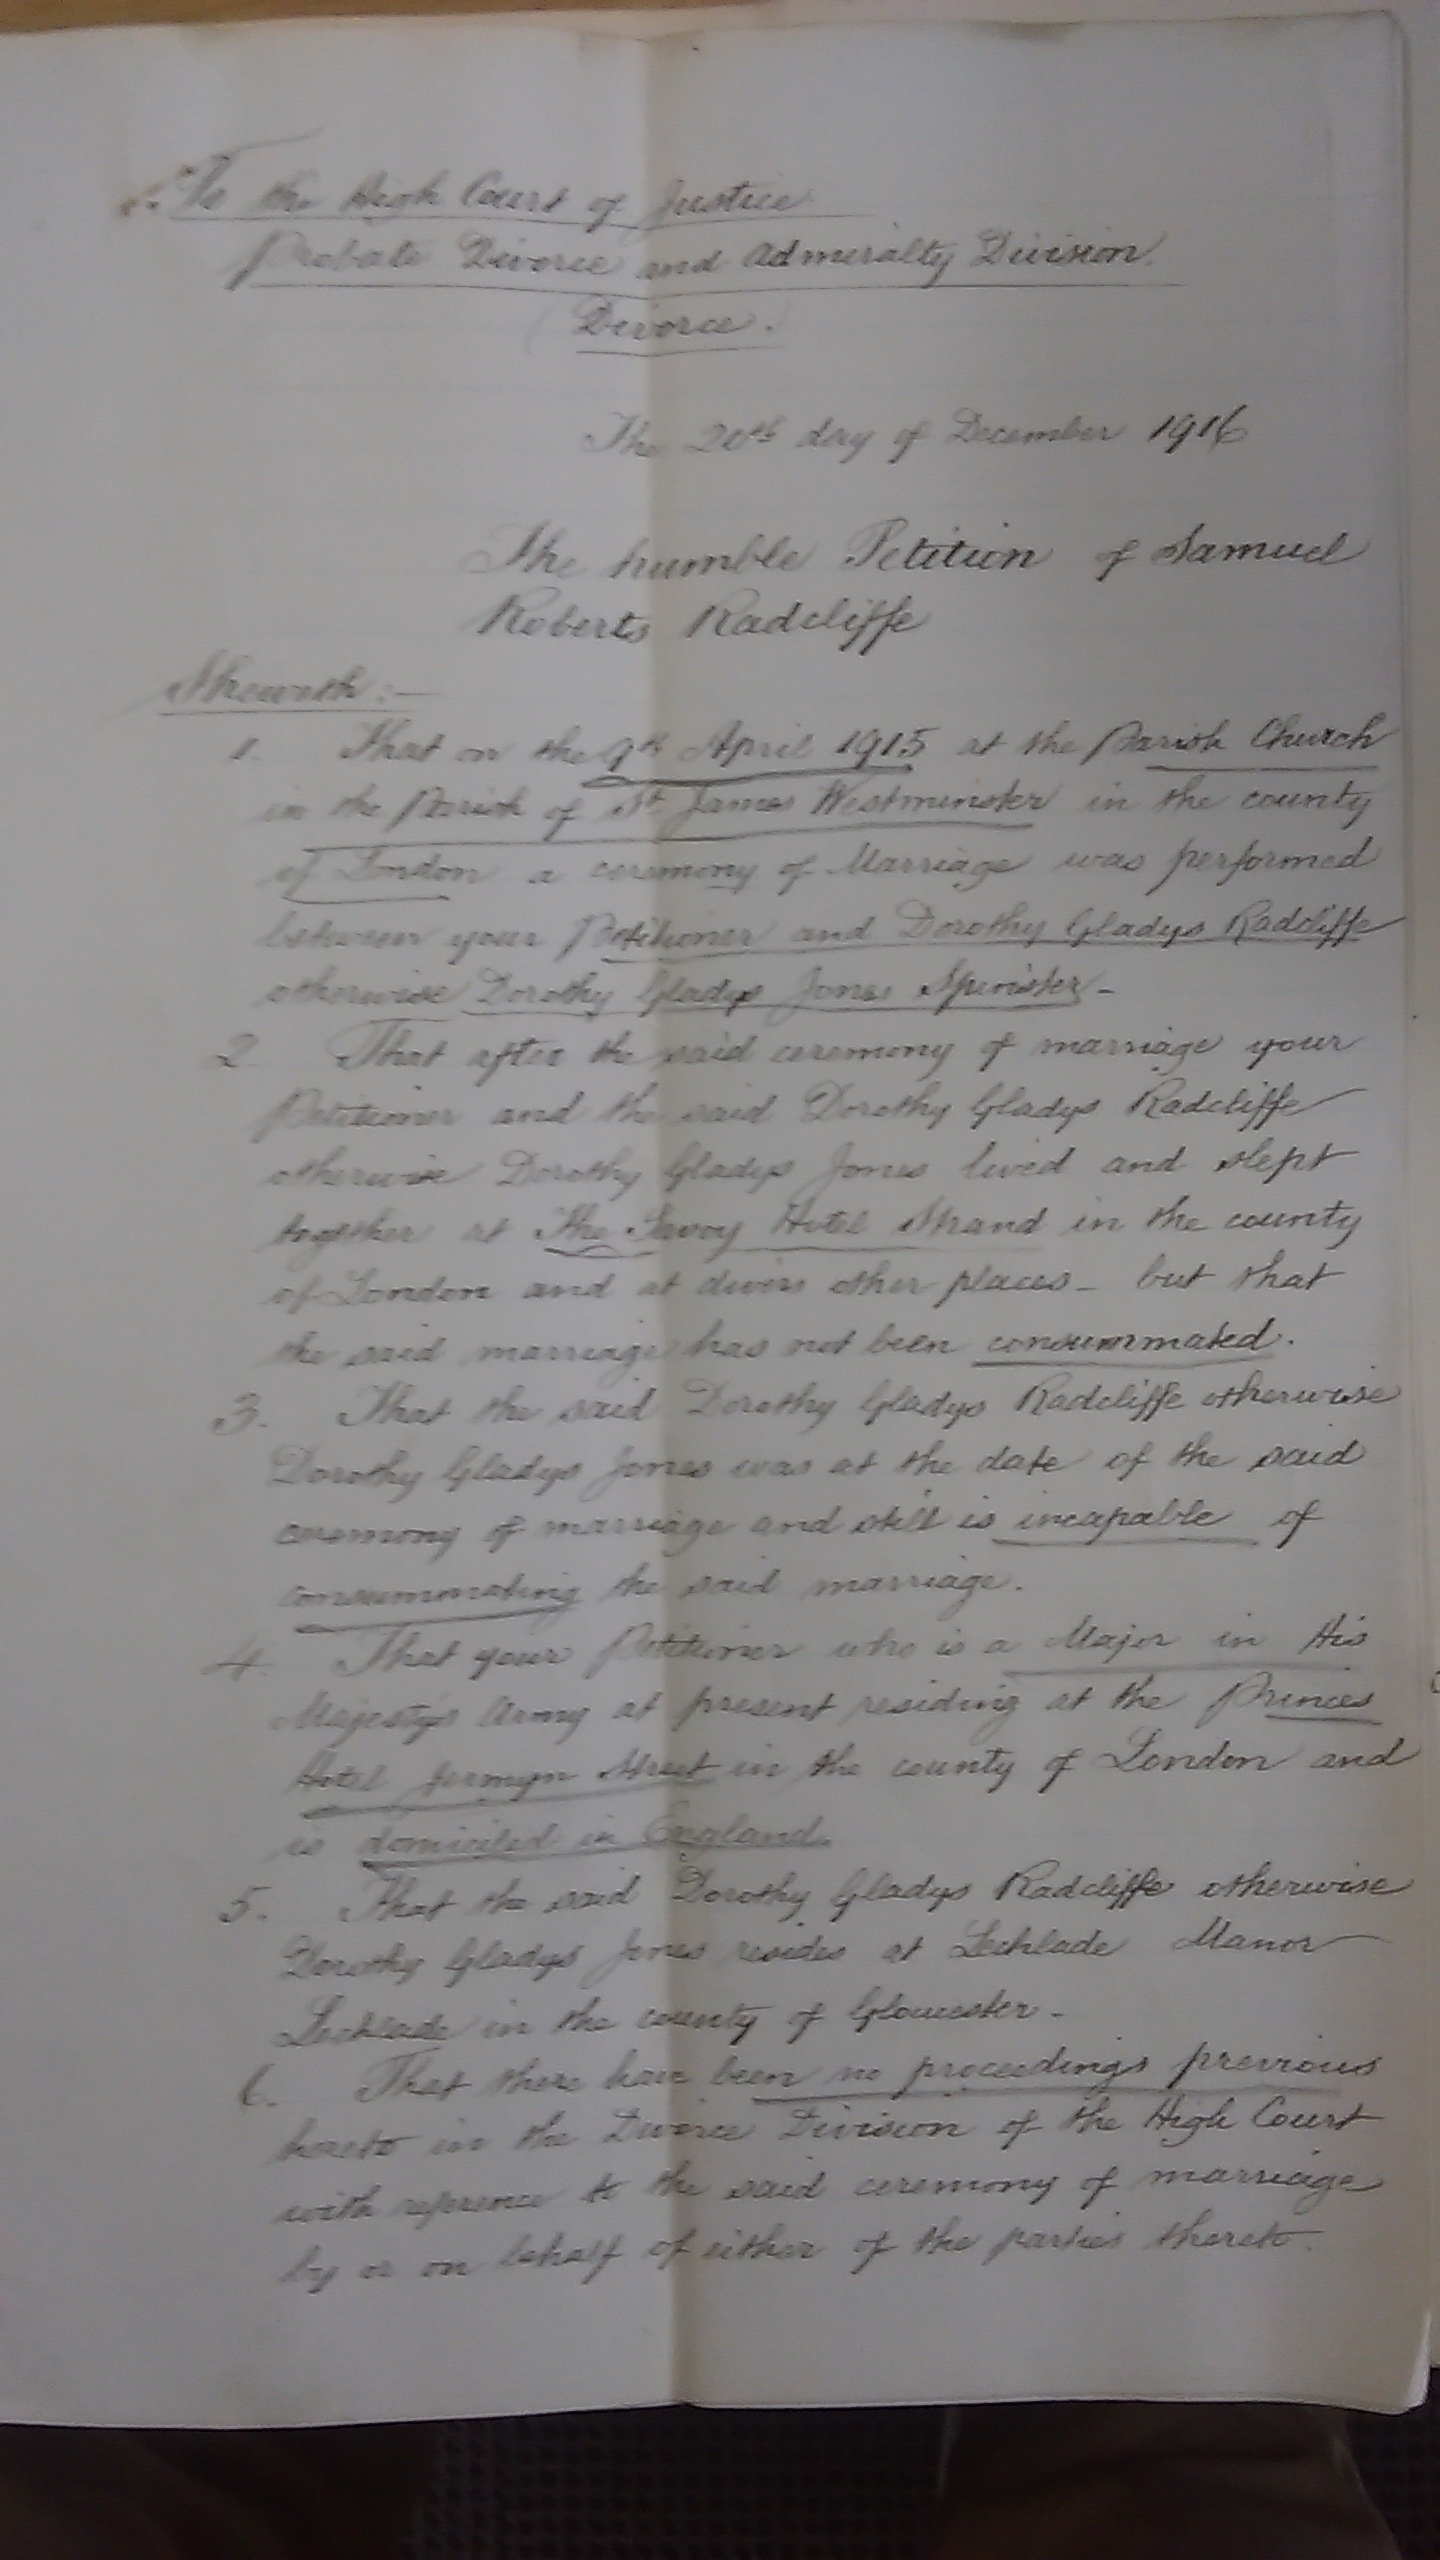 To the High Court of Justice
Probate Divorce and Admiralty Division.
(Divorce.)
The 20th day of December 1916
The humble Petition of Samuel
Roberts Radcliffe
Sheweth:—
1. That on the 9th April 1915 at the Parish Church
in the Parish of St. James Westminster in the county
of London a ceremony of Marriage was performed
between your Petitioner and Dorothy Gladys Radcliffe
otherwise Dorothy Gladys Jones Spinster -
2. That after the said ceremony of marriage your
Petitioner and the said Dorothy Gladys Radcliffe
otherwise Dorothy Gladys Jones lived and slept
together at The Savoy Hotel Strand in the county
of London and at divers other places - but that
the said marriage has not been consummated.
3. That the said Dorothy Gladys Radcliffe otherwise
Dorothy Gladys Jones was at the date of the said
ceremony of marriage and still is incapable of
consummating the said marriage.
4. That your Petitioner who is a Major in His
Majestys Army at present residing at the Princes
Hotel Jermyn Street in the county of London and
is domiciled in England.
5. That the said Dorothy Gladys Radcliffe otherwise
Dorothy Gladys Jones resides at Lechlade Manor
Lechlade in the county of Gloucester -
6. That there have been no proceedings previous
hereto in the Divorce Division of the High Court
with reference to the said ceremony of marriage
by or on behalf of either of the parties thereto.